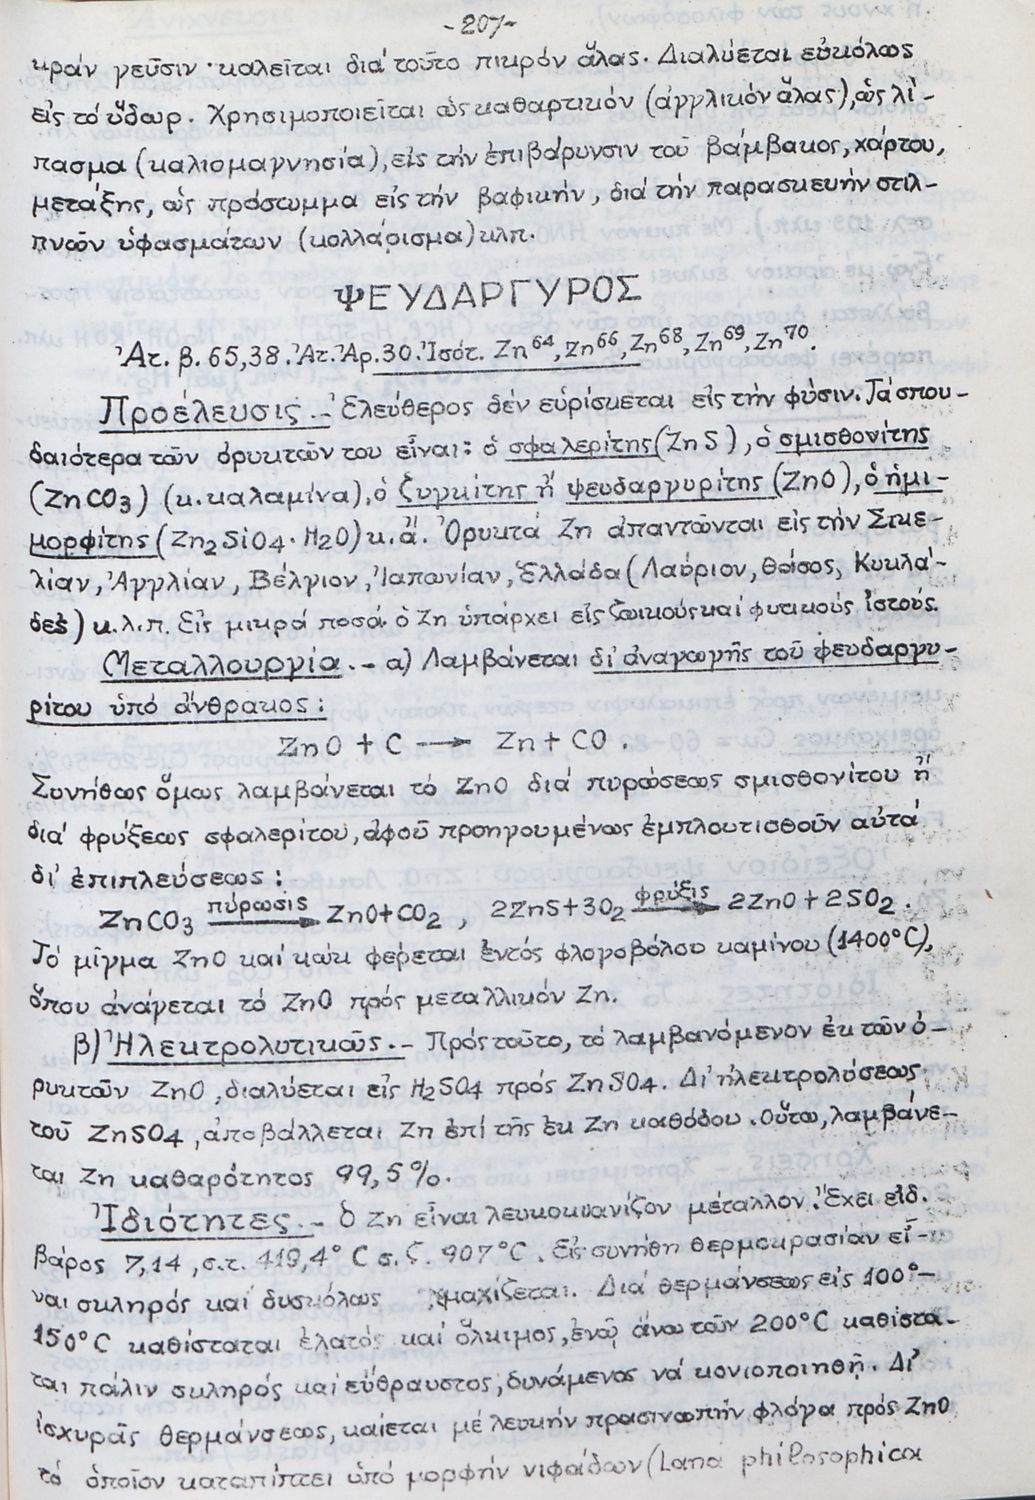 -207-
κράν γεῦσιν· καλεῖται διά τοῦτο πικρόν ἅλας. Διαλύεται εὐκόλως
εἰς τό ὕδωρ. Χρησιμοποιεῖται ὡς καθαρτικόν (ἀγγλικόν ἅλας), ὡς λί-
πασμα (καλιομαγνησία), εἰς τήν ἐπιβάρυνσιν τοῦ βάμβακος, χάρτου,
μετάξης, ὡς πρόστυμμα εἰς τήν βαφικήν, διά τήν παρασκευήν στιλ-
πνῶν ὑφασμάτων (κολλάρισμα) κλπ.
ΨΕΥΔΑΡΓΥΡΟΣ
Ἀτ. β. 65,38. Ἀτ. Ἀρ. 30. Ἰσότ. Zn⁶⁴, Zn⁶⁶, Zn⁶⁸, Zn⁶⁹, Zn⁷⁰.
Προέλευσις.- Ἐλεύθερος δέν εὑρίσκεται εἰς τήν φύσιν. Τά σπου-
δαιότερα τῶν ὀρυκτῶν του εἶναι: ὁ σφαλερίτης (ZnS), ὁ σμισθονίτης
(ZnCO₃) (κ. καλαμίνα), ὁ ζυγκίτης ἤ ψευδαργυρίτης (ZnO), ὁ ἡμι-
μορφίτης (Zn₂SiO₄·H₂O) κ.ἄ. Ὀρυκτά Zn ἀπαντῶνται εἰς τήν Σικε-
λίαν, Ἀγγλίαν, Βέλγιον, Ἰαπωνίαν, Ἑλλάδα (Λαύριον, Θάσος, Κυκλά-
δες) κ.λ.π. Εἰς μικρά ποσά ὁ Zn ὑπάρχει εἰς ζωικούς καί φυτικούς ἱστούς.
Μεταλλουργία.- α) Λαμβάνεται δι' ἀναγωγῆς τοῦ ψευδαργυ-
ρίτου ὑπό ἄνθρακος:
ZnO + C → Zn + CO.
Συνήθως ὅμως λαμβάνεται τό ZnO διά πυρώσεως σμισθονίτου ἤ
διά φρύξεως σφαλερίτου, ἀφοῦ προηγουμένως ἐμπλουτισθοῦν αὐτά
δι' ἐπιπλεύσεως:
ZnCO₃ πύρωσις → ZnO+CO₂, 2ZnS+3O₂ φρύξις → 2ZnO+2SO₂.
Τό μῖγμα ZnO καί κώκ φέρεται ἐντός φλογοβόλου καμίνου (1400°C),
ὅπου ἀνάγεται τό ZnO πρός μεταλλικόν Zn.
β) Ἠλεκτρολυτικῶς.- Πρός τοῦτο, τό λαμβανόμενον ἐκ τῶν ὀ-
ρυκτῶν ZnO, διαλύεται εἰς H₂SO₄ πρός ZnSO₄. Δι' ἠλεκτρολύσεως
τοῦ ZnSO₄, ἀποβάλλεται Zn ἐπί τῆς ἐκ Zn καθόδου. Οὕτω, λαμβάνε-
ται Zn καθαρότητος 99,5%.
Ἰδιότητες.- Ὁ Zn εἶναι λευκοκυανίζον μέταλλον. Ἔχει εἰδ.
βάρος 7,14, σ.τ. 419,4°C σ.ζ. 907°C. Εἰς συνήθη θερμοκρασίαν εἶ-
ναι σκληρός καί δυσκόλως τεμαχίζεται. Διά θερμάνσεως εἰς 100°-
150°C καθίσταται ἐλατός καί ὅλκιμος, ἐνῷ ἄνω τῶν 200°C καθίστα-
ται πάλιν σκληρός καί εὔθραυστος, δυνάμενος νά κονιοποιηθῇ. Δι'
ἰσχυρᾶς θερμάνσεως, καίεται μέ λευκήν πρασινωπήν φλόγα πρός ZnO
τό ὁποῖον καταπίπτει ὑπό μορφήν νιφάδων (Lana philosophica